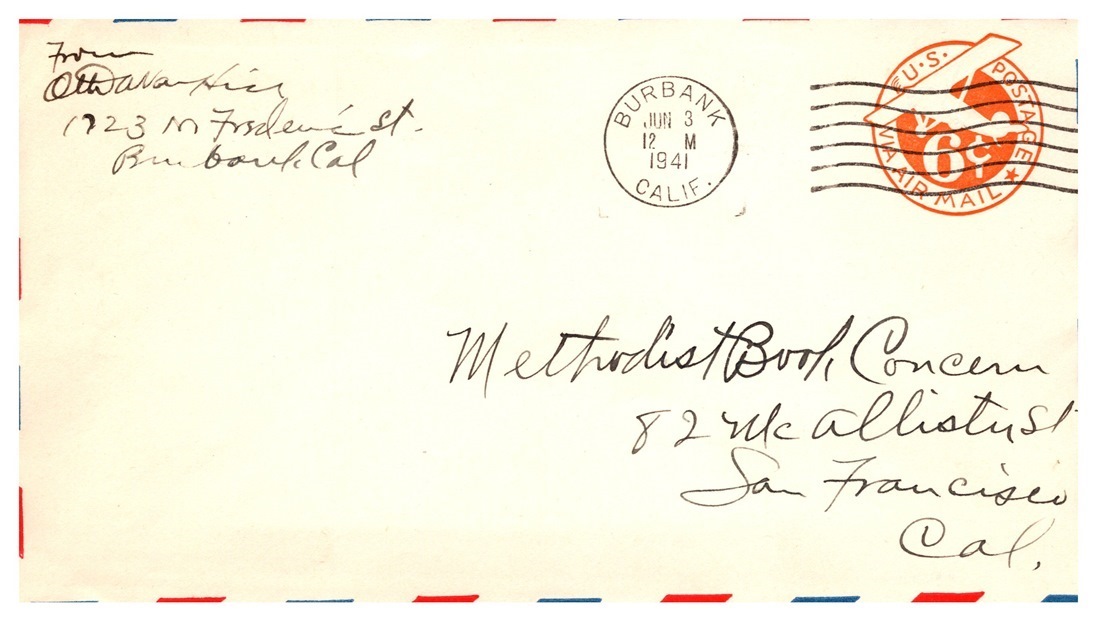 From
1723 N Frederic St.
Burbank, Cal
BURBANK
JUN 3
12 M
1941
CALIF.
U.S. POSTAGE
6¢
VIA AIR MAIL
Methodist Book Concern
82 McAllister St
San Francisco
Cal.